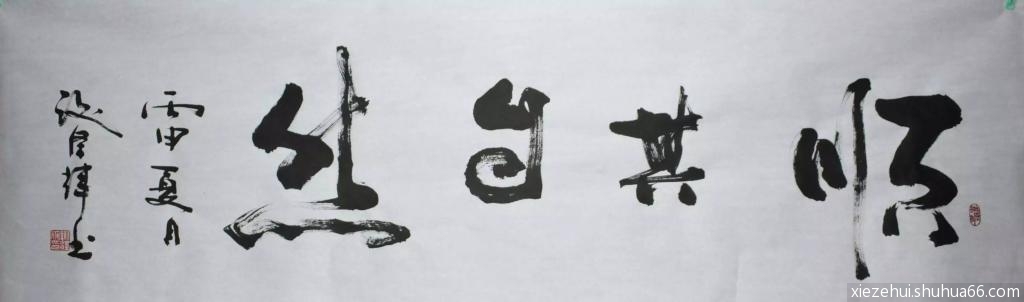 顺其自然
丙申夏月
书
xiezehui.shuhua66.com